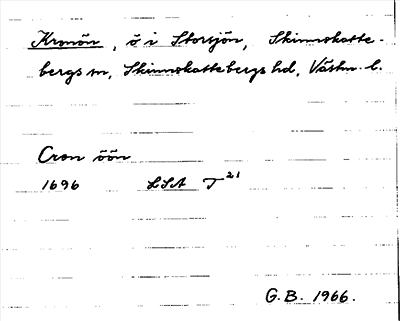 Kronön, ö i Storsjön, Skinnskatte-
bergs sn, Skinnskattebergs hd, Västm. l.
Cron öön
1696 LSA T 21
G.B. 1966.